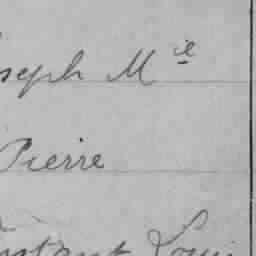 seph M ie
Pierre
nstant Louis